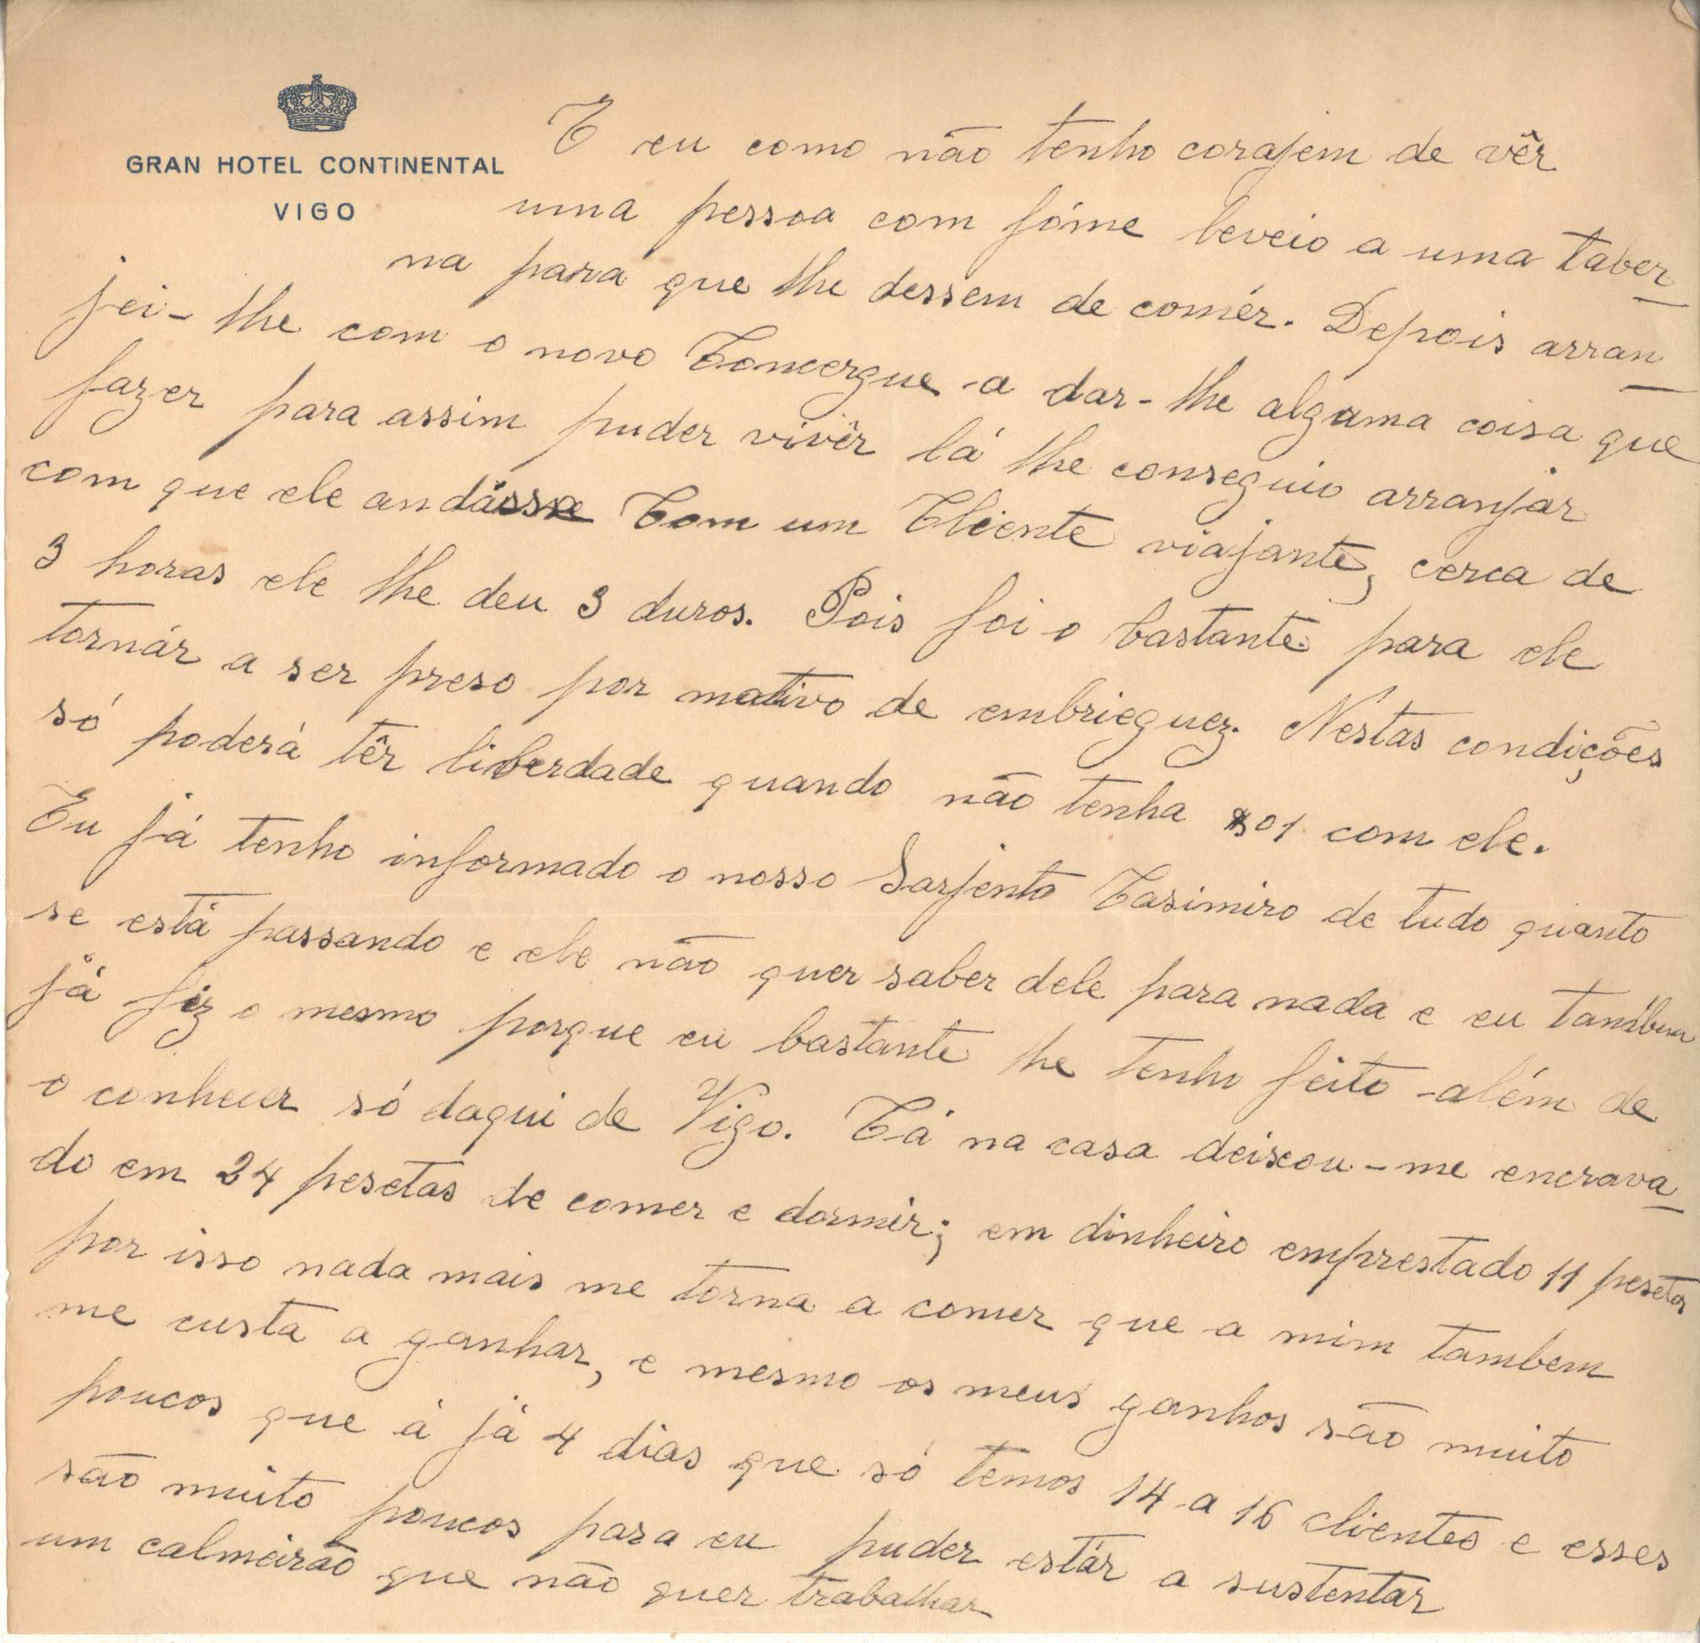 GRAN HOTEL CONTINENTAL
VIGO
E eu como não tenho corajem de vêr
uma pessoa com fóme leveio a uma taber-
na para que lhe dessem de comér. Depois arran-
jei-lhe com o novo Concergue a dar-lhe alguma coisa que
fazer para assim puder vivêr lá lhe conseguio arranjar
com que ele andásse Com um Cliente viajante, cerca de
3 horas ele lhe deu 3 duros. Pois foi o bastante para ele
tornár a ser preso por mutivo de embrieguez. Nestas condições
só poderá têr liberdade quando não tenha $01 com ele.
Eu já tenho informado o nosso Sarjento Casimiro de tudo quanto
se está passando e ele não quer saber dele para nada e eu também
já fiz o mesmo porque eu bastante lhe tenho feito além de
o conhecer só daqui de Vigo. Cá na casa deixou-me encrava-
do em 24 pesetas de comer e dormir; em dinheiro emprestado 11 pesetas
por isso nada mais me torna a comer que a mim tambem
me custa a ganhar, e mesmo os meus ganhos são muito
poucos que á já 4 dias que só temos 14 a 16 clientes e esses
são muito poucos para eu puder estár a sustentar
um calmeirão que não quer trabalhar